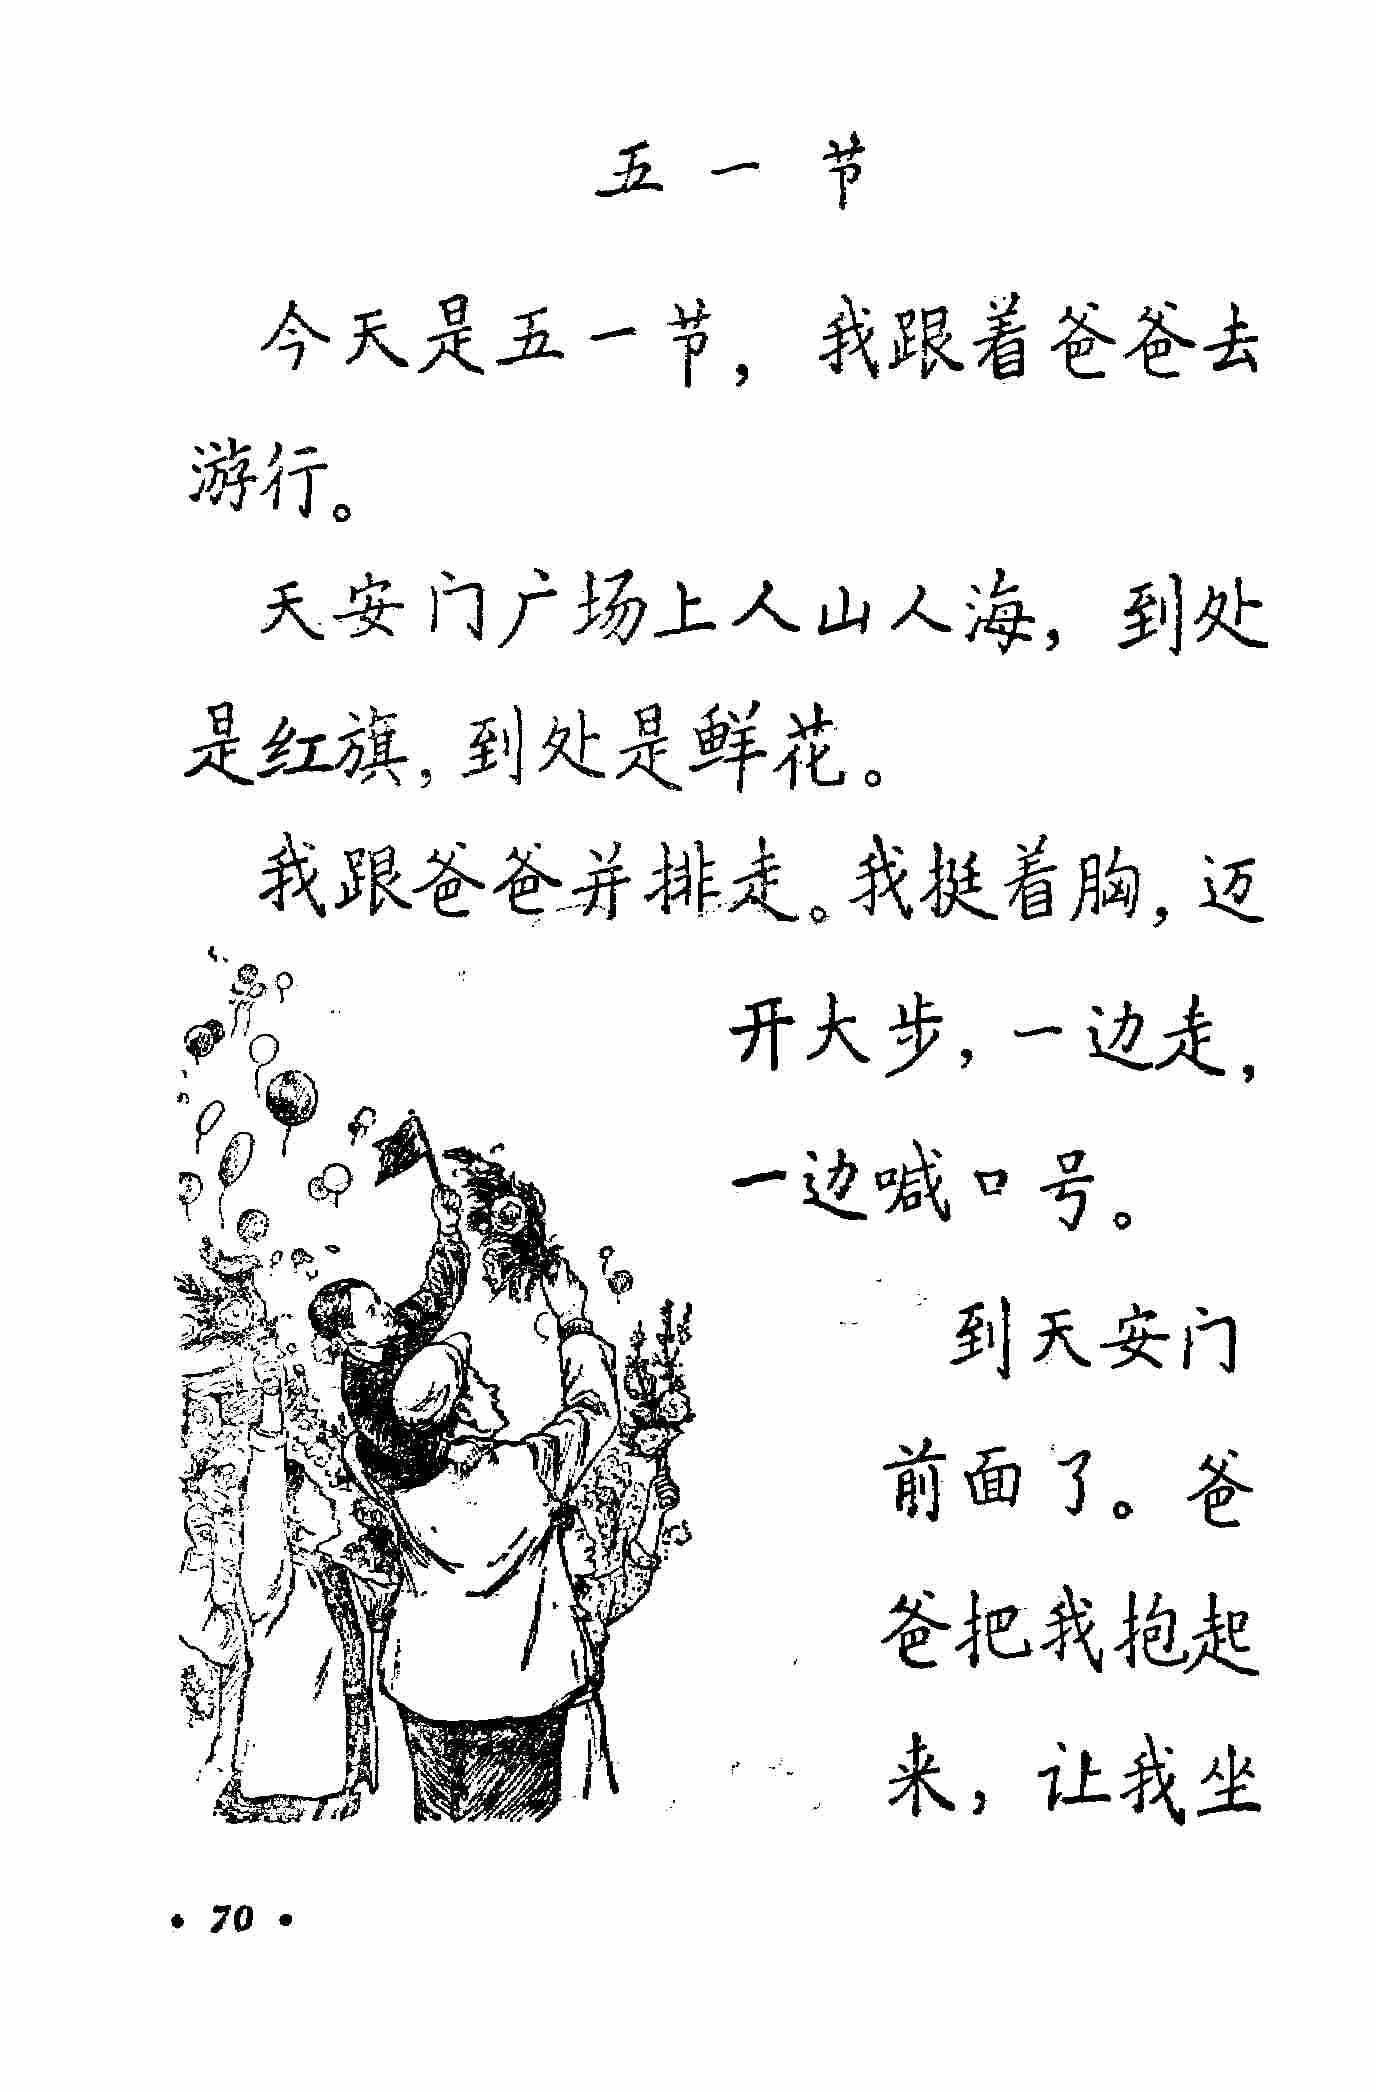 五一节
今天是五一节，我跟着爸爸去
游行。
天安门广场上人山人海，到处
是红旗，到处是鲜花。
我跟爸爸并排走。我挺着胸，迈
开大步，一边走，
一边喊口号。
到天安门
前面了。爸
爸把我抱起
来，让我坐
·70·